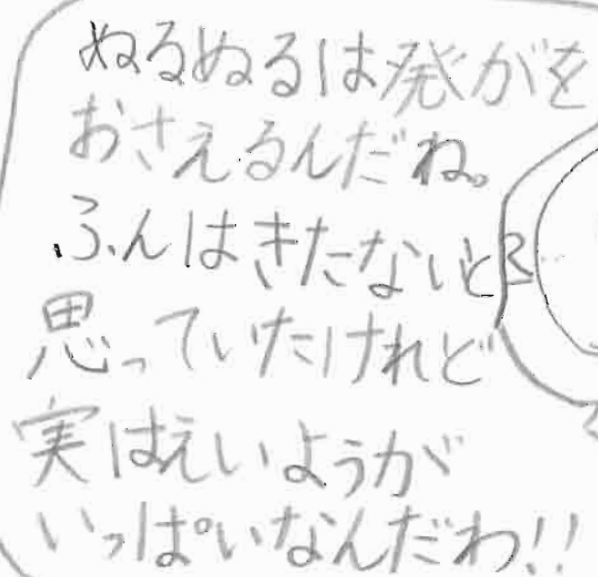 ぬるぬるは発がを
おさえるんだね。
ふんはきたないと
思っていたけれど
実はえいようが
いっぱいなんだわ!!